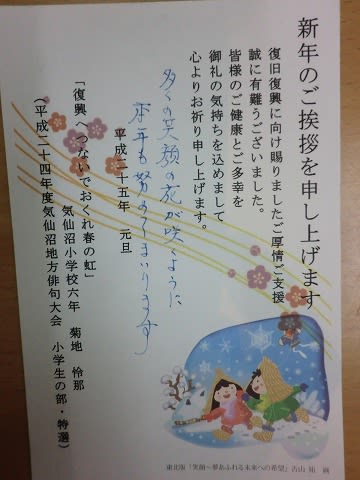 新年のご挨拶を申し上げます
復旧復興に向け賜りましたご厚情ご支援
誠に有難うございました。
皆様のご健康とご多幸を
御礼の気持ちを込めまして
心よりお祈り申し上げます。
多くの笑顔の花が咲くように
本年も努めてまいります
平成二十五年 元旦
「復興へつないでおくれ春の虹」
気仙沼小学校六年 菊地 怜那
(平成二十四年度気仙沼地方俳句大会 小学生の部・特選)
東北版「笑顔〜夢あふれる未来への希望」吉山 拓 画